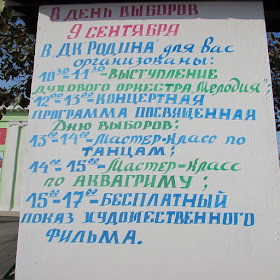 В ДЕНЬ ВЫБОРОВ
9 СЕНТЯБРЯ
В ДК РОДИНА для вас
организованы:
10³⁰-11³⁰-ВЫСТУПЛЕНИЕ
ДУХОВОГО ОРКЕСТРА "МЕЛОДИЯ";
12⁰⁰-13⁰⁰-КОНЦЕРТНАЯ
ПРОГРАММА ПОСВЯЩЕННАЯ
ДНЮ ВЫБОРОВ;
13⁰⁰-14⁰⁰-МАСТЕР-КЛАСС ПО
ТАНЦАМ;
14⁰⁰-15⁰⁰-МАСТЕР-КЛАСС
ПО АКВАГРИМУ;
15⁰⁰-17⁰⁰-БЕСПЛАТНЫЙ
ПОКАЗ ХУДОЖЕСТВЕННОГО
ФИЛЬМА.